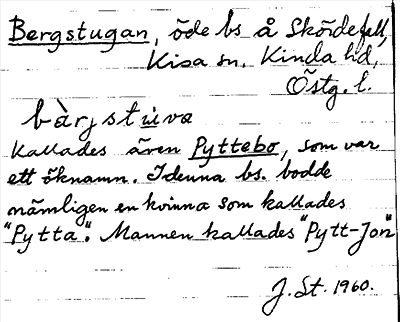 Bergstugan, öde bs å Skördefall,
Kisa sn, Kinda hd,
Östg. l.
bàrjstuvα
Kallades även Pyttebo, som var
ett öknamn. I denna bs. bodde
nämligen en kvinna som kallades
"Pytta". Mannen kallades "Pytt-Jon"
J. St. 1960.